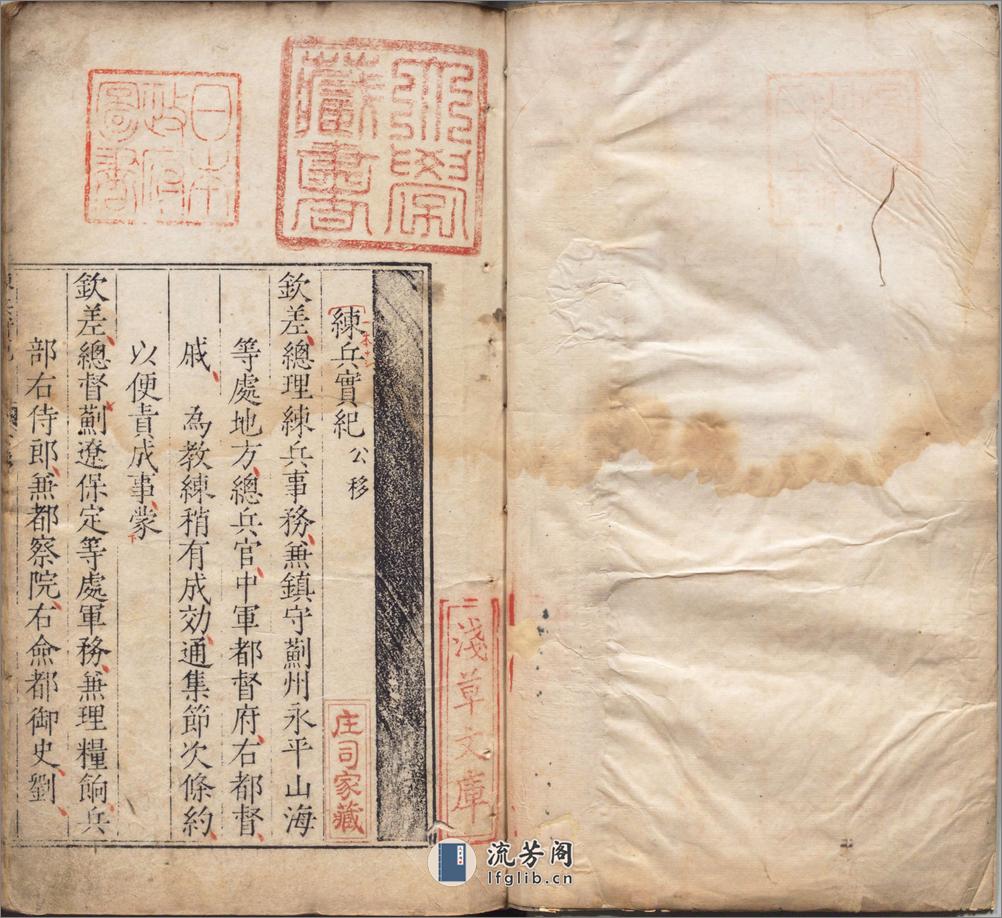 練兵實紀 公移
欽差總理練兵事務兼鎮守薊州永平山海
等處地方總兵官中軍都督府右都督
戚 為教練稍有成効通集節次條約
以便責成事蒙
欽差總督薊遼保定等處軍務兼理糧餉兵
部右侍郎兼都察院右僉都御史劉
日本政府圖書
淺草文庫
庄司家藏
藏書
流芳阁
lfglib.cn